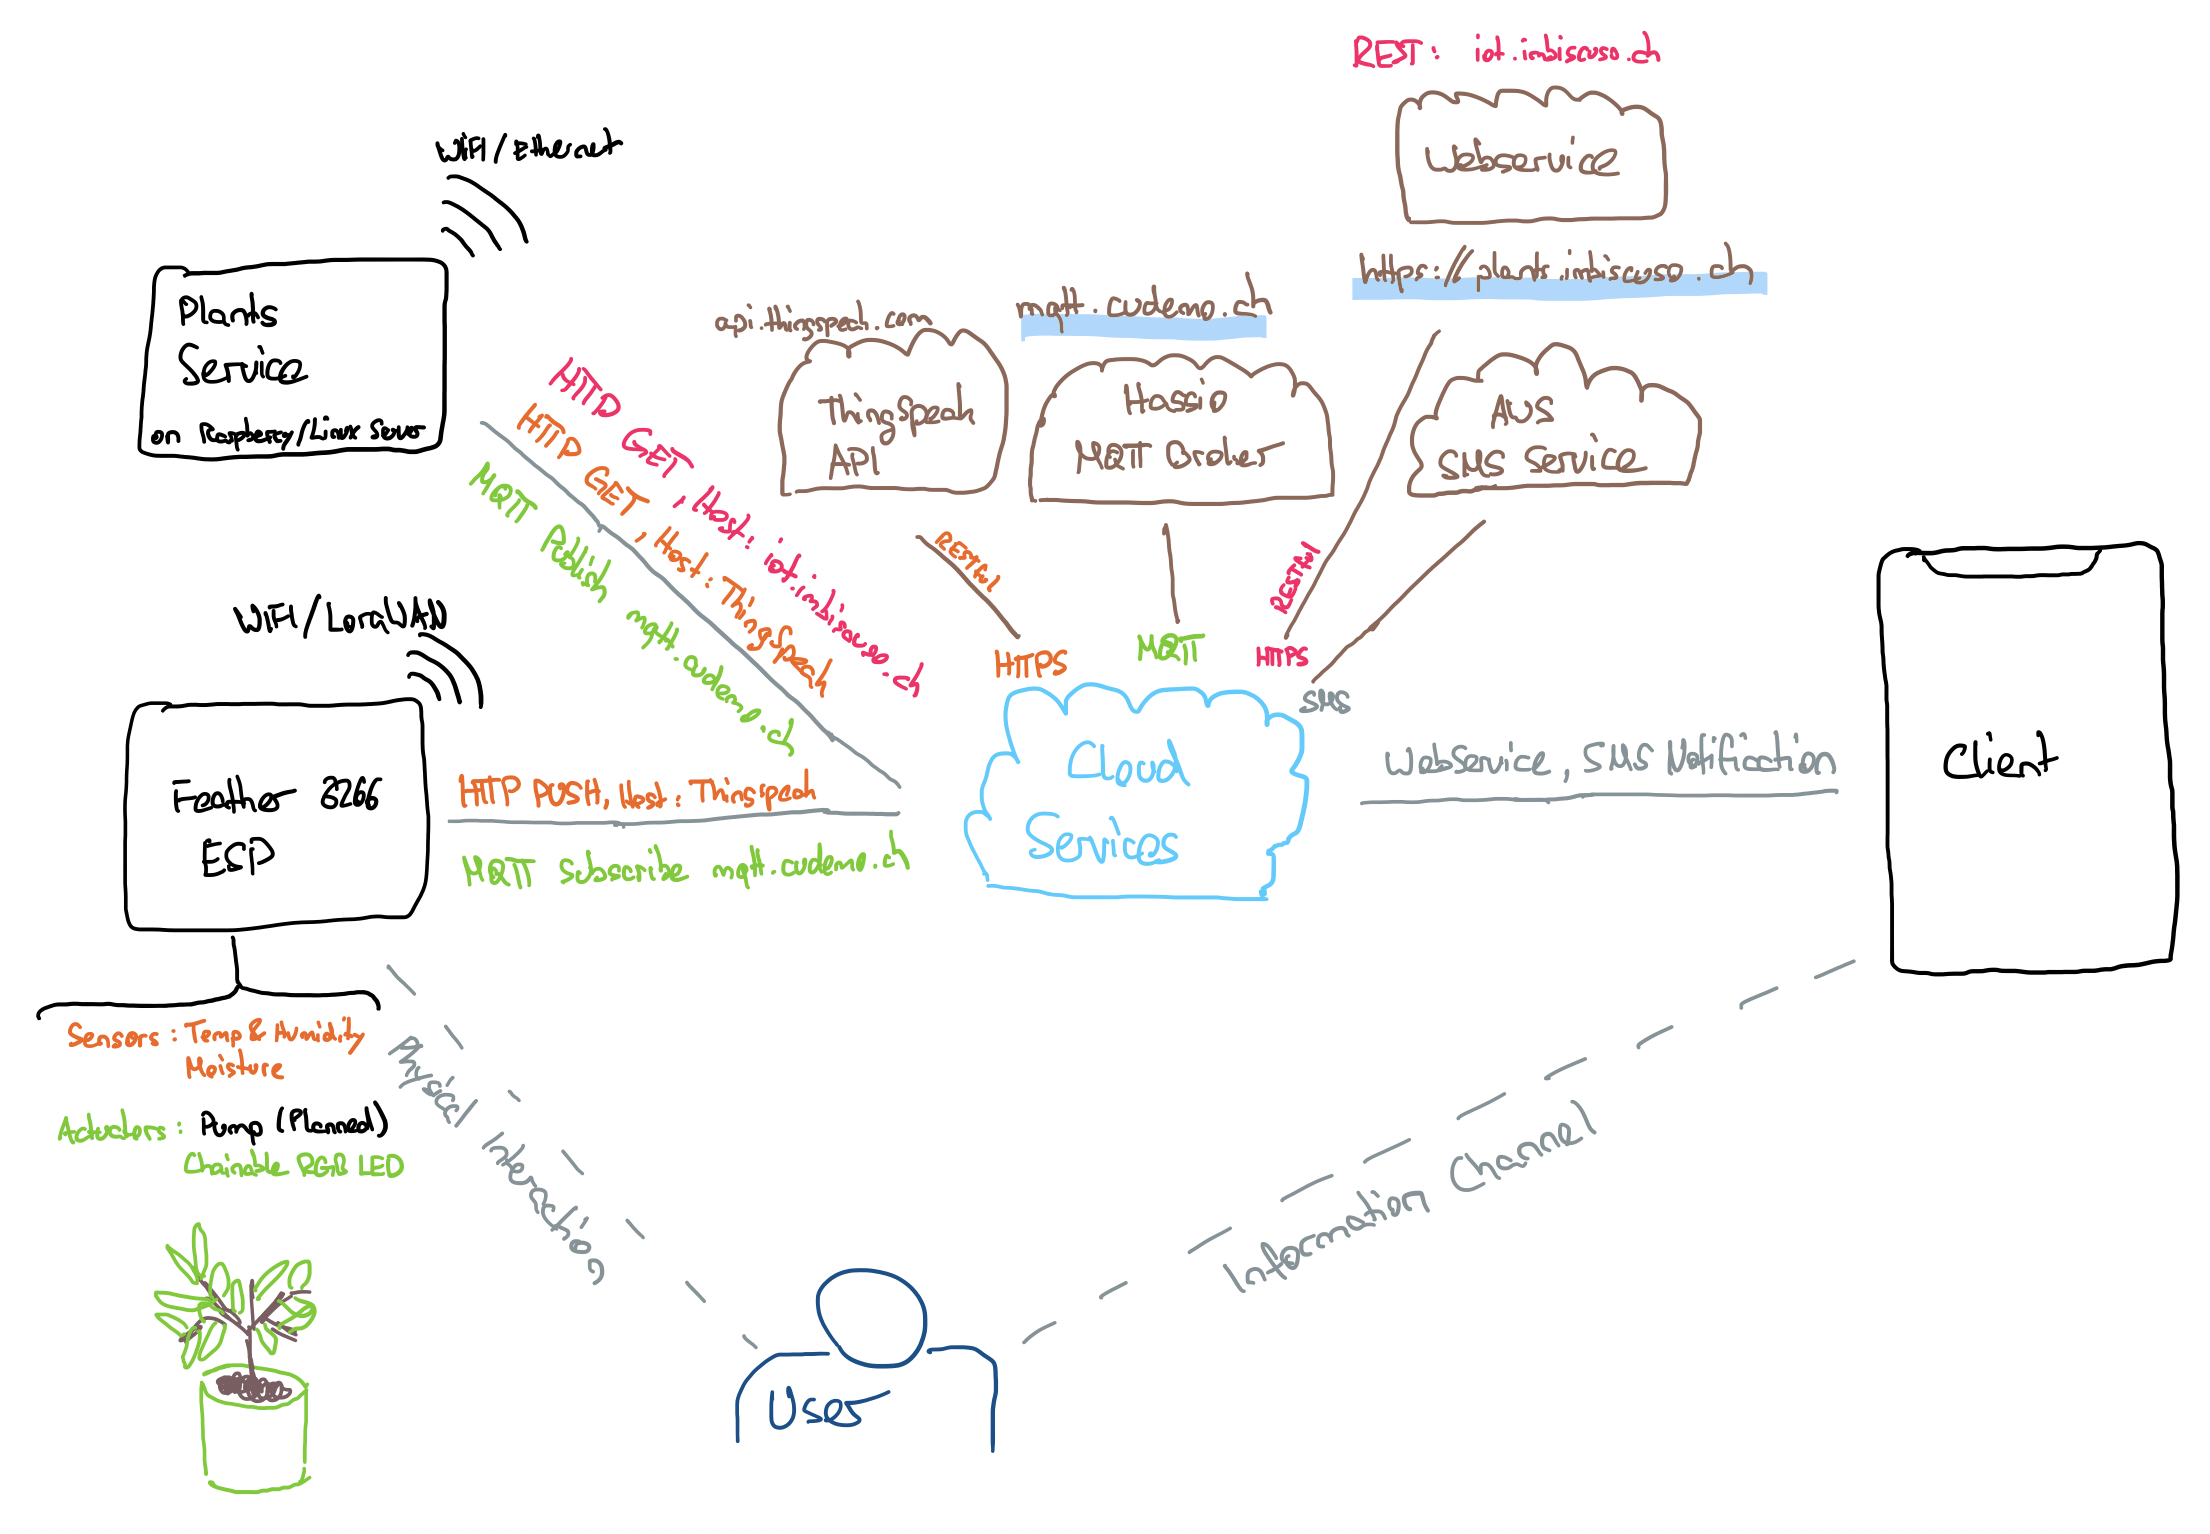 REST: iot.imbiscuso.ch
Webservice
https://plants.imbiscuso.ch
WiFi/Ethernet
Plants
Service
on Raspberry/Linux Server
api.thingspeak.com
ThingSpeak
API
mqtt.cudemo.ch
Hassio
MQTT Broker
AWS
SMS Service
HTTP GET, Host: iot.imbiscuso.ch
HTTP GET, Host: ThingSpeak
MQTT Publish mqtt.cudemo.ch
RESTful
HTTPS
MQTT
RESTful
HTTPS
SMS
WiFi/LoraWAN
Feather 8266
ESP
HTTP PUSH, Host: Thingspeak
MQTT Subscribe mqtt.cudemo.ch
Cloud
Services
WebService, SMS Notification
Client
Sensors: Temp & Humidity
Moisture
Actuators: Pump (Planned)
Chainable RGB LED
Physical Interaction
Information Channel
User